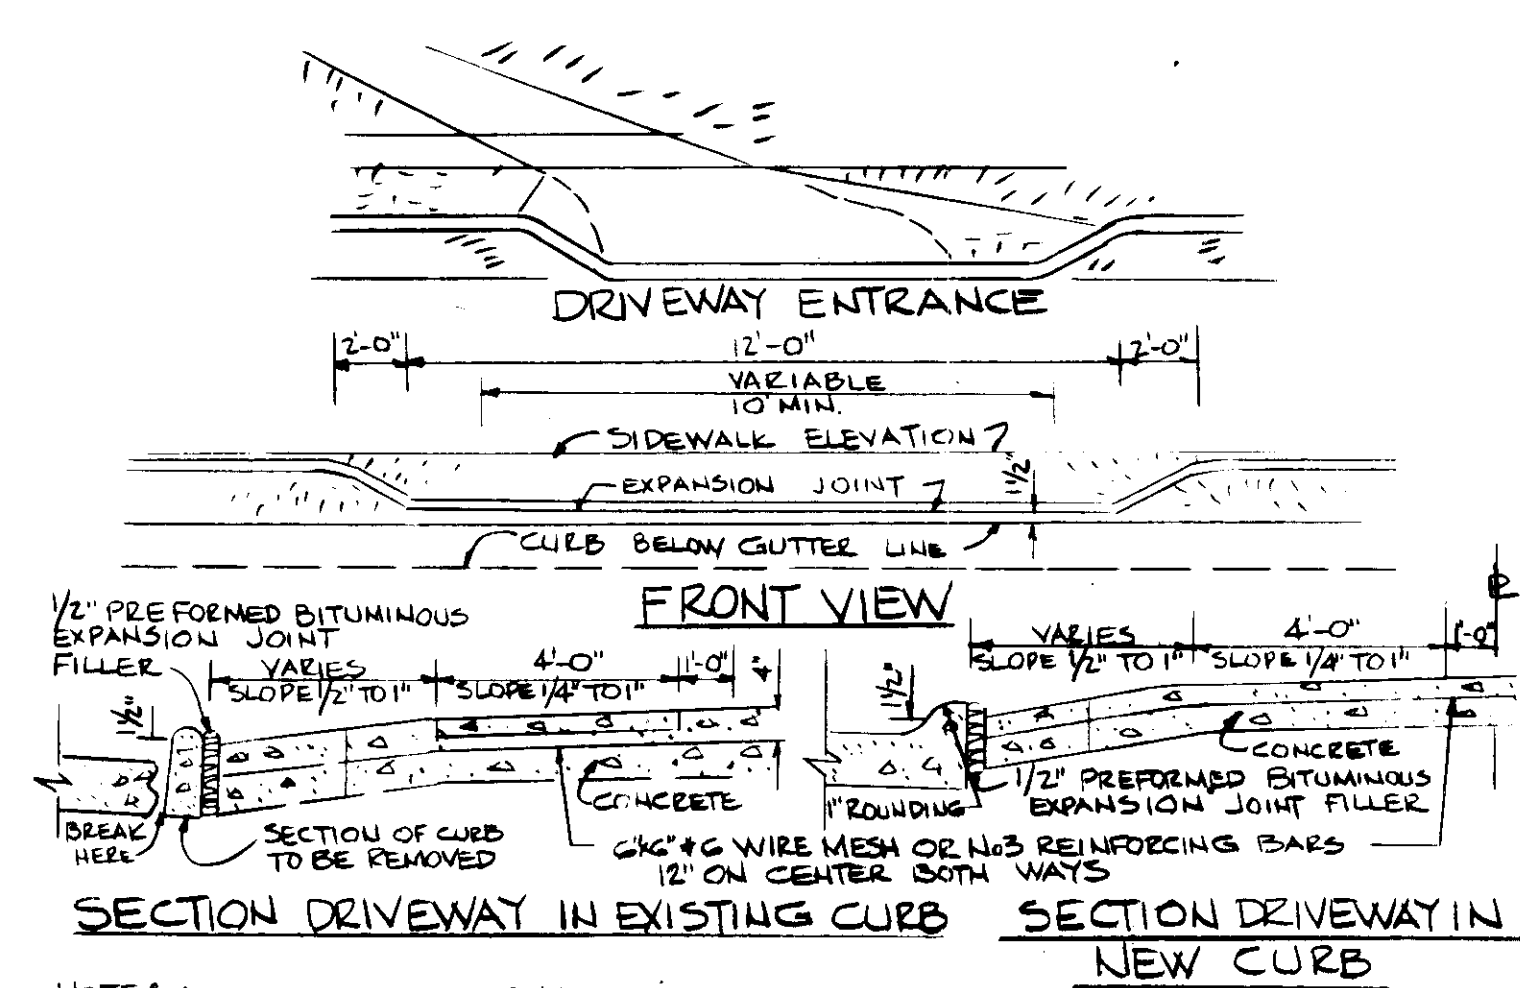 DRIVEWAY ENTRANCE
2'-0" 12'-0" 2'-0"
VARIABLE
10' MIN.
SIDEWALK ELEVATION
1 1/2"
EXPANSION JOINT
CURB BELOW GUTTER LINE
FRONT VIEW
1/2" PREFORMED BITUMINOUS
EXPANSION JOINT
FILLER
VARIES 4'-0" 1'-0" 4"
SLOPE 1/2" TO 1" SLOPE 1/4" TO 1"
1 1/2"
CONCRETE
BREAK
HERE
SECTION OF CURB
TO BE REMOVED
VARIES 4'-0" 1'-0"
SLOPE 1/2" TO 1" SLOPE 1/4" TO 1"
1 1/2"
CONCRETE
1" ROUNDING
1/2" PREFORMED BITUMINOUS
EXPANSION JOINT FILLER
6"x6" #6 WIRE MESH OR No3 REINFORCING BARS
12" ON CENTER BOTH WAYS
SECTION DRIVEWAY IN EXISTING CURB
SECTION DRIVEWAY IN
NEW CURB